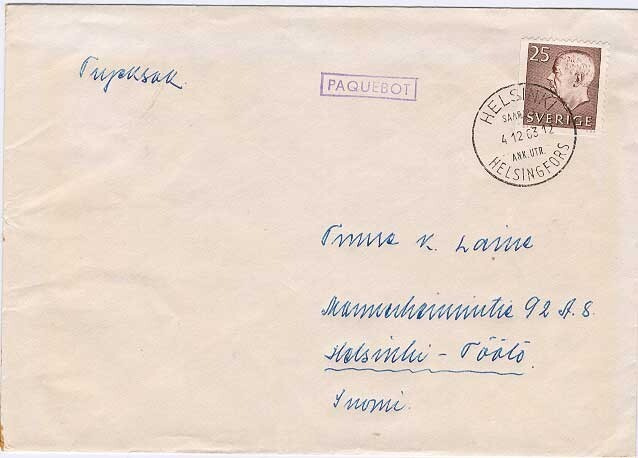 Trycksak.
PAQUEBOT
25
SVERIGE
HELSINKI
SAAP.
4.12.63 12
ANK.UTR.
HELSINGFORS
K. Laine
Mannerheimintie 92 A.8.
Helsinki - Töölö.
Suomi.